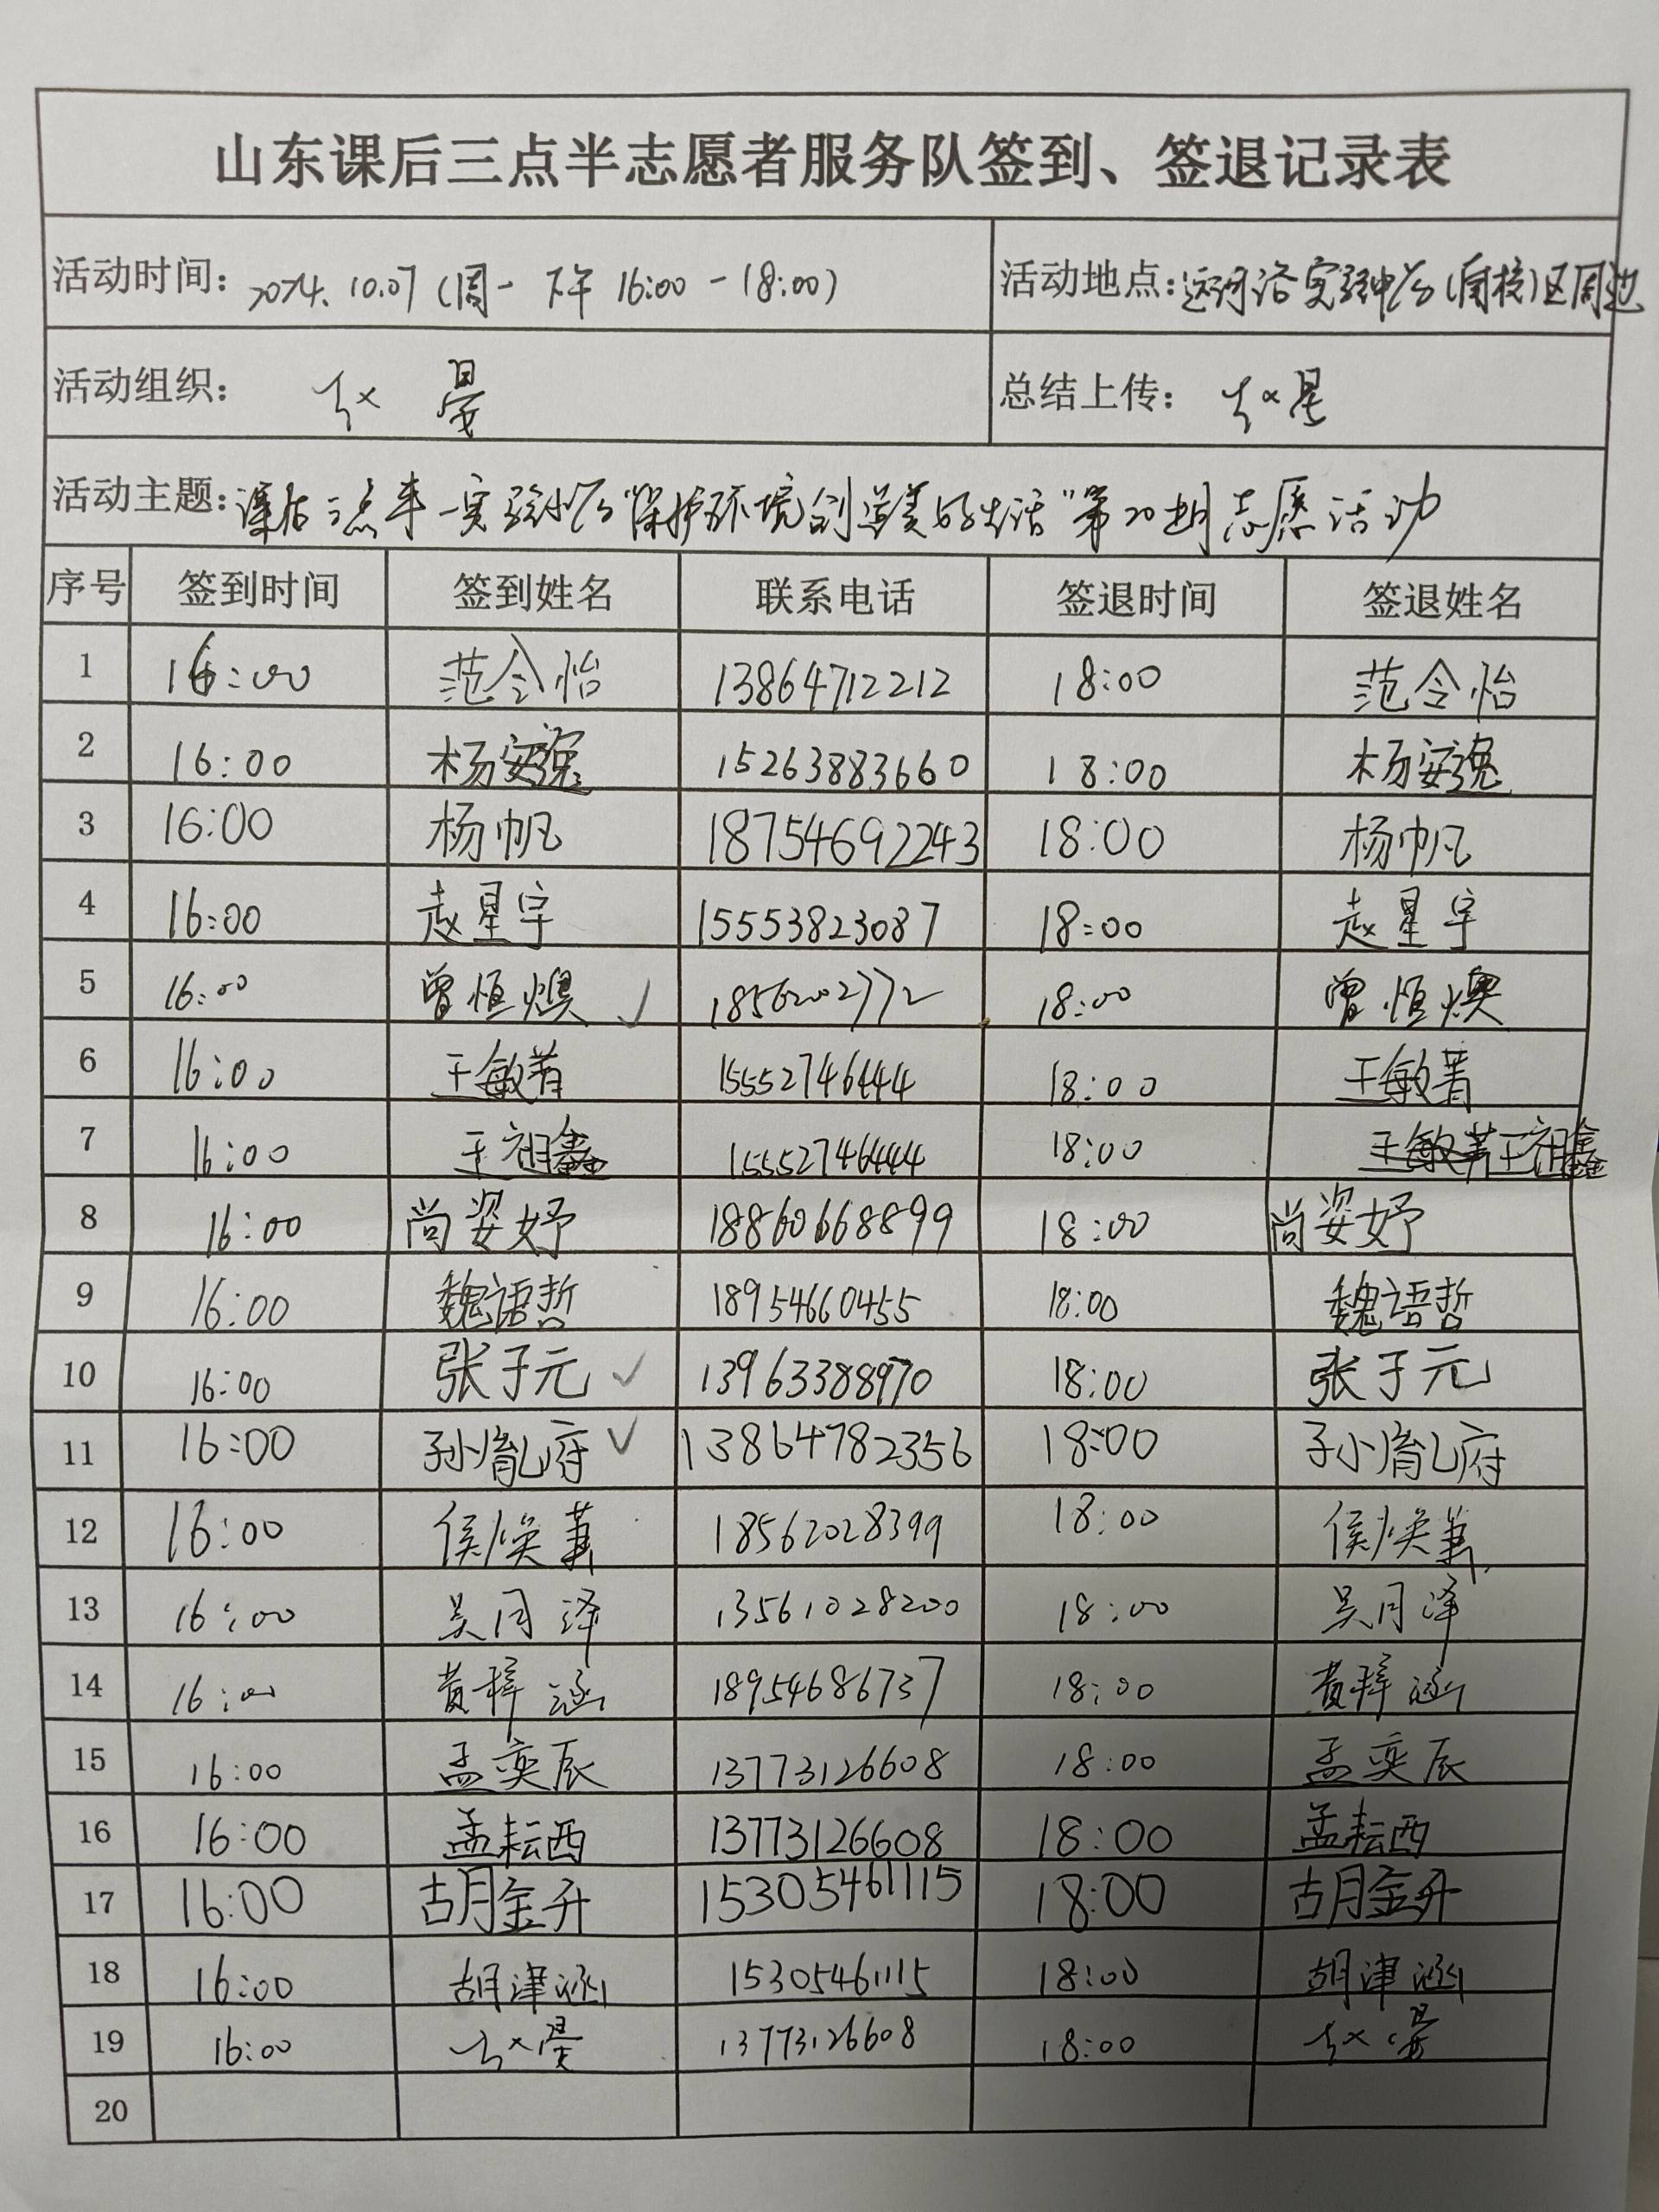 山东课后三点半志愿者服务队签到、签退记录表
活动时间：2024.10.07（周一 下午 16:00-18:00） 活动地点：实验（南校）区周边
活动组织：赵晏 总结上传：赵晏
活动主题：课后三点半-实验小学"保护环境创造美好生活"第20期志愿活动
序号 签到时间 签到姓名 联系电话 签退时间 签退姓名
1 16:00 范令怡 13864712212 18:00 范令怡
2 16:00 杨安逸 15263883660 18:00 杨安逸
3 16:00 杨帆 18754692243 18:00 杨帆
4 16:00 赵星宇 15553823087 18:00 赵星宇
5 16:00 曾恒燠 ✓ 18562022772 18:00 曾恒燠
6 16:00 王敏菁 15552746444 18:00 王敏菁
7 16:00 王祖鑫 15552746444 18:00 王祖鑫
8 16:00 尚姿妤 18860668899 18:00 尚姿妤
9 16:00 魏语哲 18954660455 18:00 魏语哲
10 16:00 张子元 ✓ 13963388970 18:00 张子元
11 16:00 孙胤府 ✓ 13864782356 18:00 孙胤府
12 16:00 侯焕 18562028399 18:00 侯焕
13 16:00 吴同泽 13561028200 18:00 吴同泽
14 16:00 黄梓涵 18954686737 18:00 黄梓涵
15 16:00 孟奕辰 13773126608 18:00 孟奕辰
16 16:00 孟耘西 13773126608 18:00 孟耘西
17 16:00 胡金升 15305461115 18:00 胡金升
18 16:00 胡津涵 15305461115 18:00 胡津涵
19 16:00 赵晏 13773126608 18:00 赵晏
20